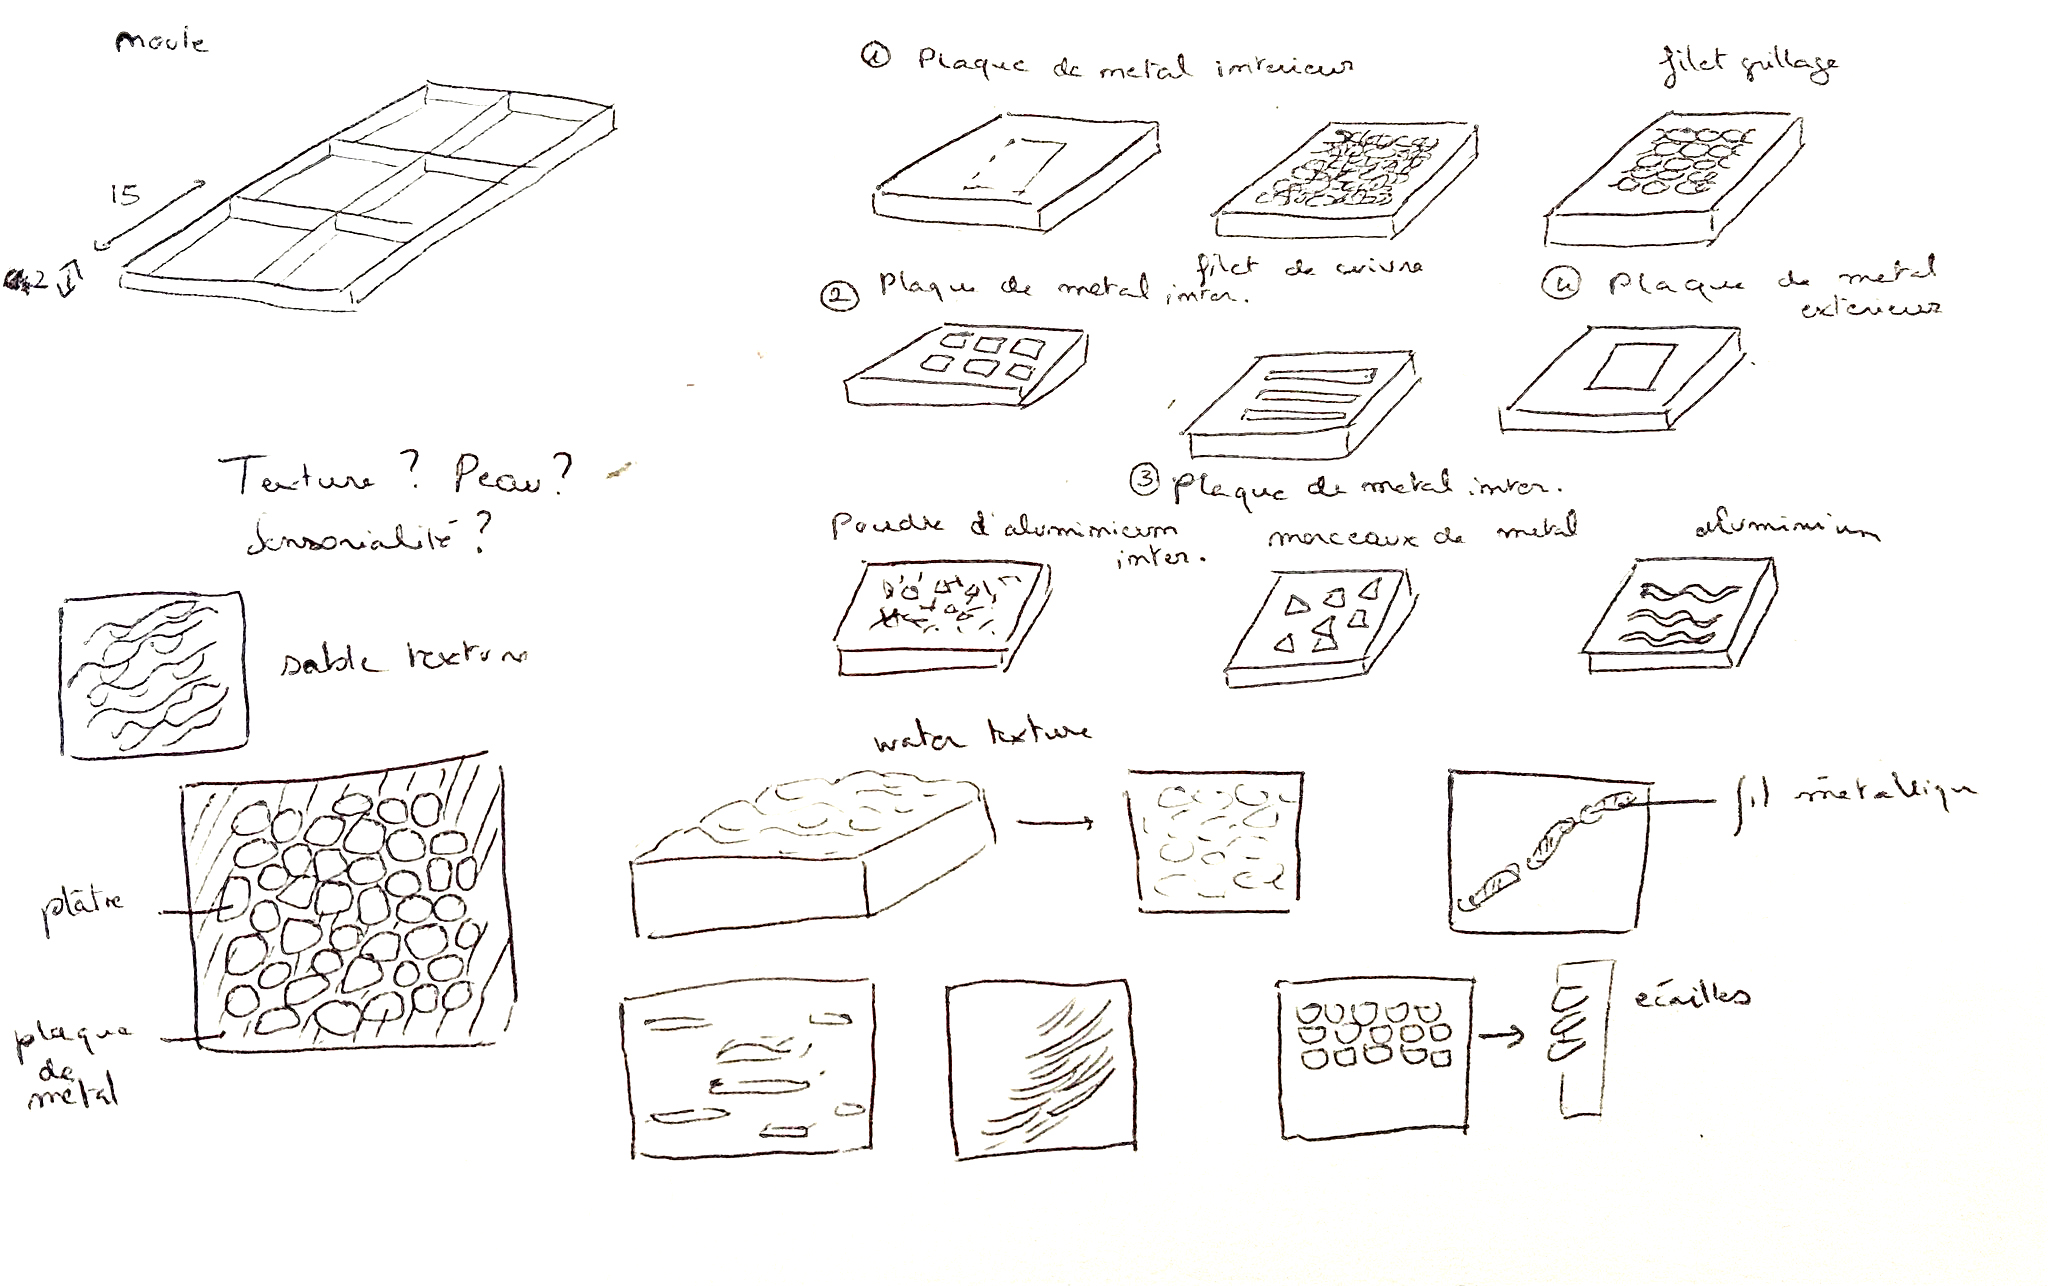 moule
15
2
① Plaque de metal interieur
filet grillage
filet de cuivre
② Plaque de metal inter.
④ Plaque de metal
exterieur
③ plaque de metal inter.
Texture ? Peau ?
Sensorialité ?
Poudre d'aluminium
inter.
morceaux de metal
aluminium
sable texture
water texture
fil métallique
plâtre
plaque
de
métal
écailles